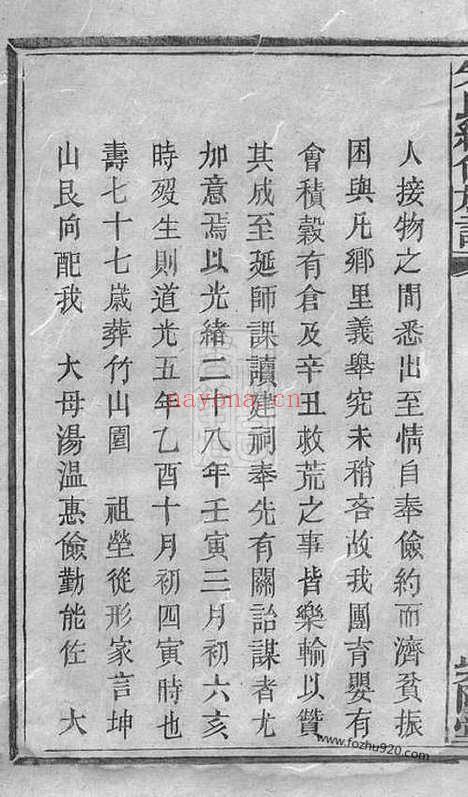 人接物之間悉出至情自奉儉約而濟貧振
困與凡鄉里義舉究未稍吝故我團育嬰有
會積穀有倉及辛丑救荒之事皆樂輸以贊
其成至延師課讀建祠奉先有關詒謀者尤
加意焉以光緒二十八年壬寅三月初六亥
時歿生則道光五年乙酉十月初四寅時也
壽七十七歲葬竹山圍　祖塋從形家言坤
山艮向配我　大母湯溫惠儉勤能佐　大
nayona.cn
www.fozhu920.com